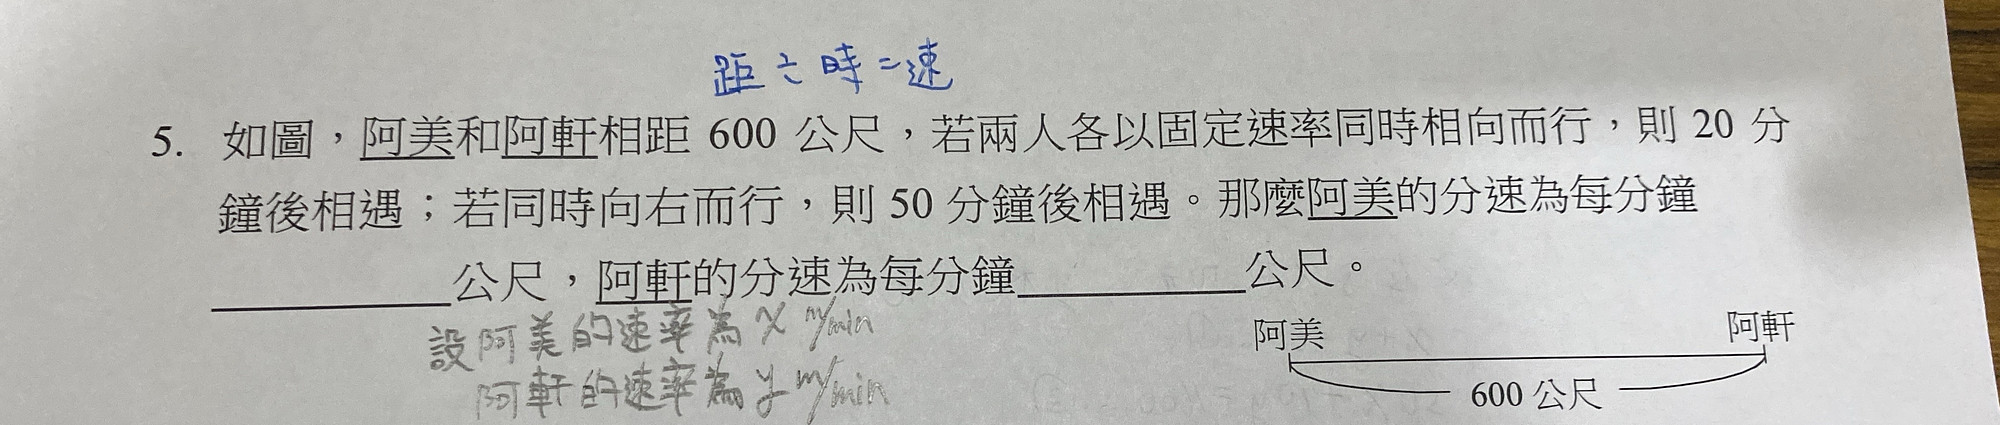 距÷時=速
5. 如圖，阿美和阿軒相距 600 公尺，若兩人各以固定速率同時相向而行，則 20 分
鐘後相遇；若同時向右而行，則 50 分鐘後相遇。那麼阿美的分速為每分鐘
________公尺，阿軒的分速為每分鐘________公尺。
設阿美的速率為 x m/min
阿軒的速率為 y m/min
阿美 阿軒
600 公尺